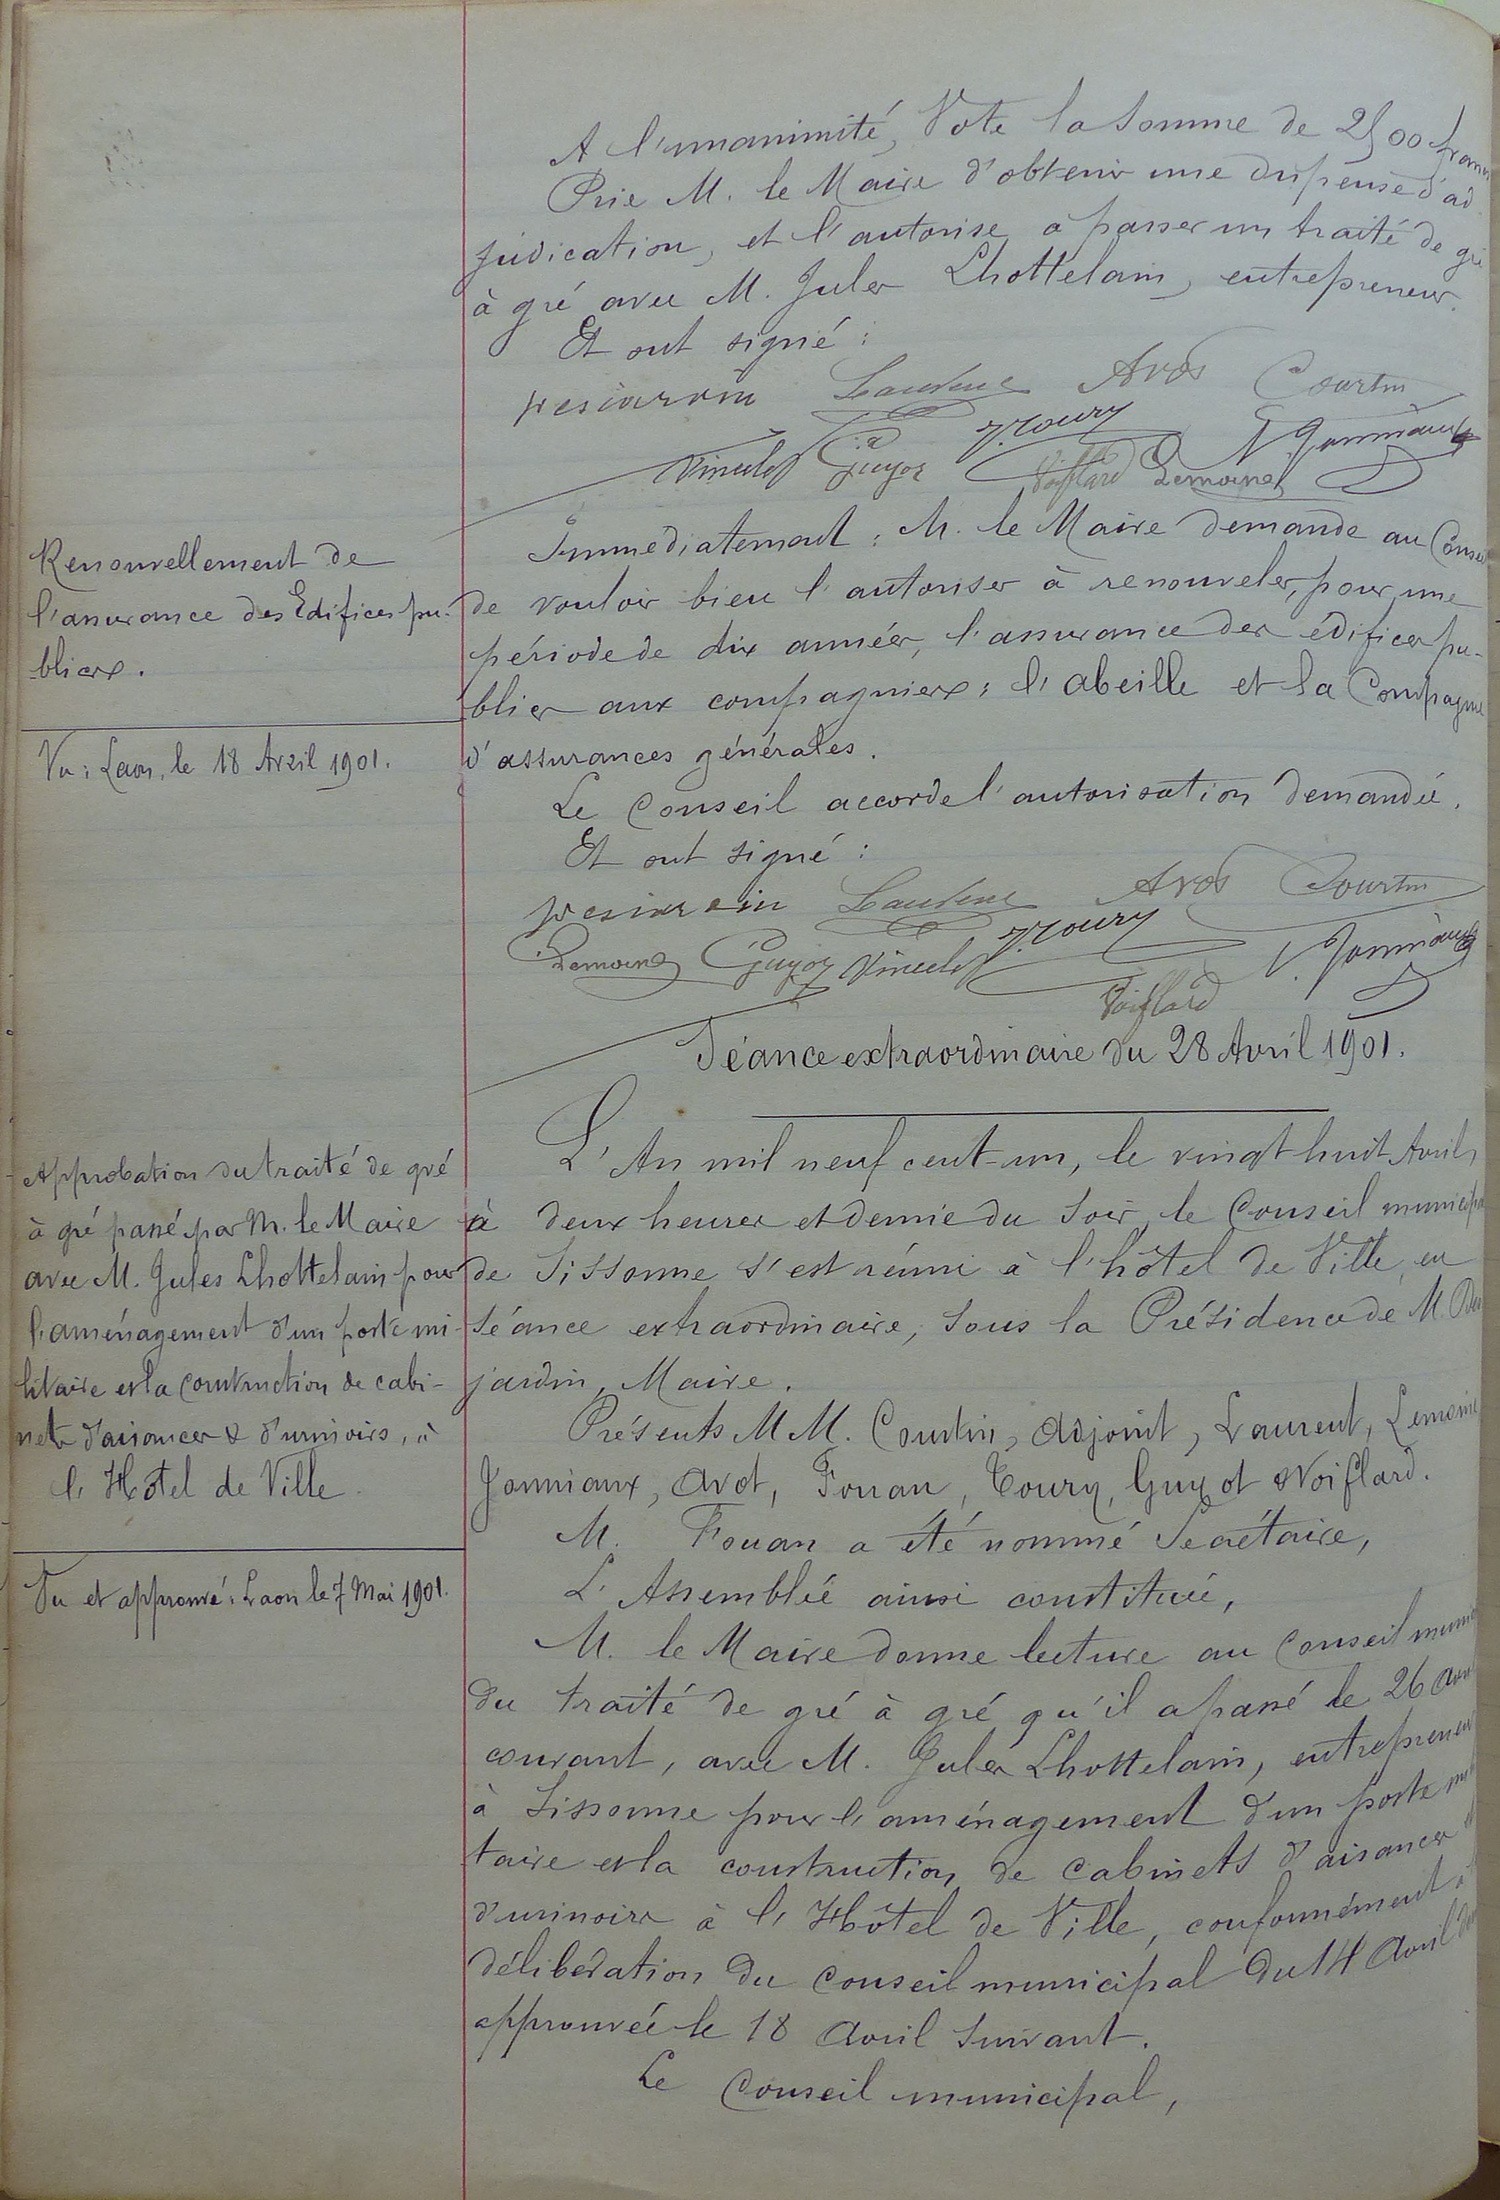 A l'unanimité, Vote la somme de 2500 francs
Prie M. le Maire d'obtenir une dispense d'ad
judication, et l'autorise à passer un traité de gré
à gré avec M. Jules Lhottelain, entrepreneur.
Et ont signé :
Laurent Avot Courtin
Toury
Guyot Voiflard Lemoine Jonniaux
Renouvellement de
l'assurance des Edifices pu-
blics.
Vu : Laon, le 18 Avril 1901.
Immédiatement : M. le Maire demande au Conseil
de vouloir bien l'autoriser à renouveler, pour une
période de dix années, l'assurance des édifices pu-
blics aux compagnies : l'abeille et la Compagnie
d'assurances générales.
Le Conseil accorde l'autorisation demandée.
Et ont signé :
Laurent Avot Courtin
Lemoine Guyot Toury Jonniaux
Voiflard
Séance extraordinaire du 28 Avril 1901.
Approbation du traité de gré
à gré passé par M. le Maire
avec M. Jules Lhottelain pour
l'aménagement d'un poste mi-
litaire et la construction de cabi-
nets d'aisances & d'urinoirs, à
l'Hôtel de Ville.
Vu et approuvé : Laon le 7 Mai 1901.
L'An mil neuf cent-un, le vingt huit Avril,
à deux heures et demie du soir, le Conseil municipal
de Sissonne s'est réuni à l'hôtel de Ville, en
séance extraordinaire, sous la Présidence de M.
jardin, Maire.
Présents MM. Courtin, adjoint, Laurent, Lemoine
Jonniaux, Avot, Fouan, Toury, Guyot & Voiflard.
M. Fouan a été nommé Secrétaire,
L'Assemblée ainsi constituée,
M. le Maire donne lecture au Conseil
du traité de gré à gré qu'il a passé le 26 avril
courant, avec M. Jules Lhottelain, entrepreneur
à Sissonne pour l'aménagement d'un poste mi
taire et la construction de cabinets d'aisances
d'urinoirs à l'Hôtel de Ville, conformément
délibération du conseil municipal du 14 avril
approuvée le 18 avril suivant.
Le Conseil municipal,